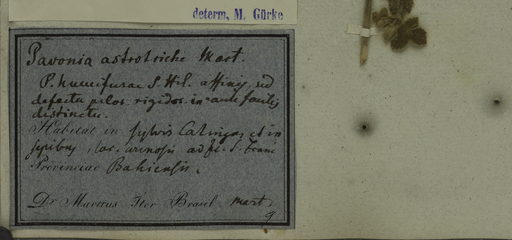 determ. M. Gürke
Pavonia astrotricha Mart.
P. humifusae S. Hil. affinis, sed
defectu pilor. rigidor. in caule facilis
distinctu.
Habitat in sylvis Catingas et in
sepibus, loc. arenosis ad fl. S. Franc
Provinciae Bahiensis.
Dr. Martius Iter Brasil. Mart.